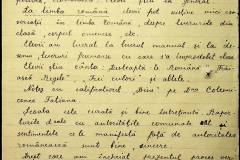 La limba română elevii pot susține mici con-
versații în limba română, despre lucrurile din
clasă, corpul omenesc etc.
Elevii au lucrat la lucrul manual și la de-
semn, lucrări frumoase cu care s'a împodobit clasa.
Elevii știu cânta: Deșteaptă-te Română, Trăi-
ască Regele, Trei culori și altele.
Notez cu calificativul "Bine" pe D-ra Colomi-
ceanca Tatiana.
Școala este curată și bine întreținută. Rapor-
turile d-sale cu autoritățile comunale cât și
sentimentele ce le manifestă față de autoritatea
românească sunt bine, sincere.
Drept care am încheiat prezentul proces ver-